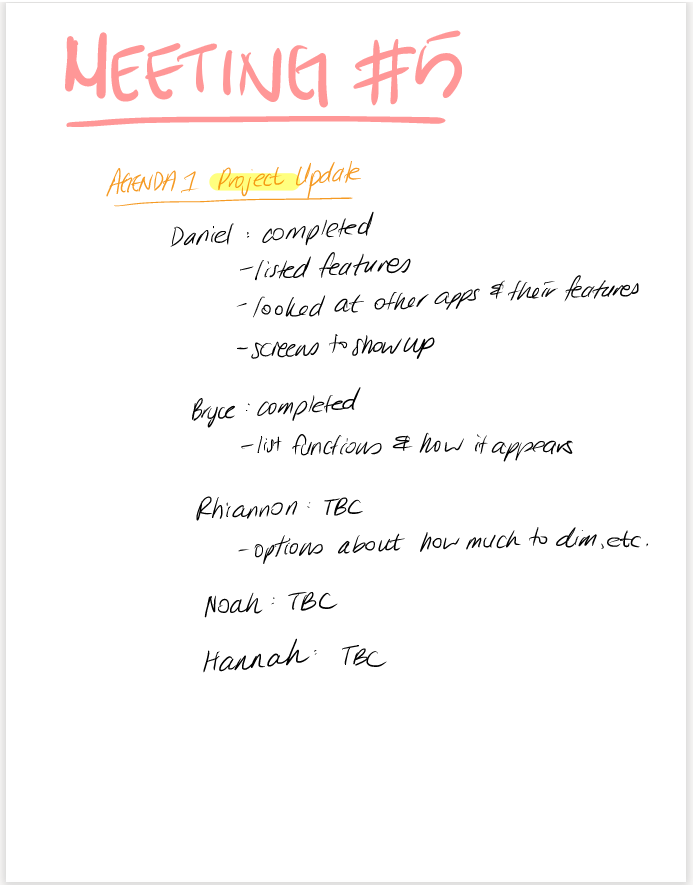 MEETING #5
AGENDA 1 Project Update
Daniel : completed
- listed features
- looked at other apps & their features
- screens to show up
Bryce : completed
- list functions & how it appears
Rhiannon : TBC
- options about how much to dim, etc.
Noah : TBC
Hannah : TBC